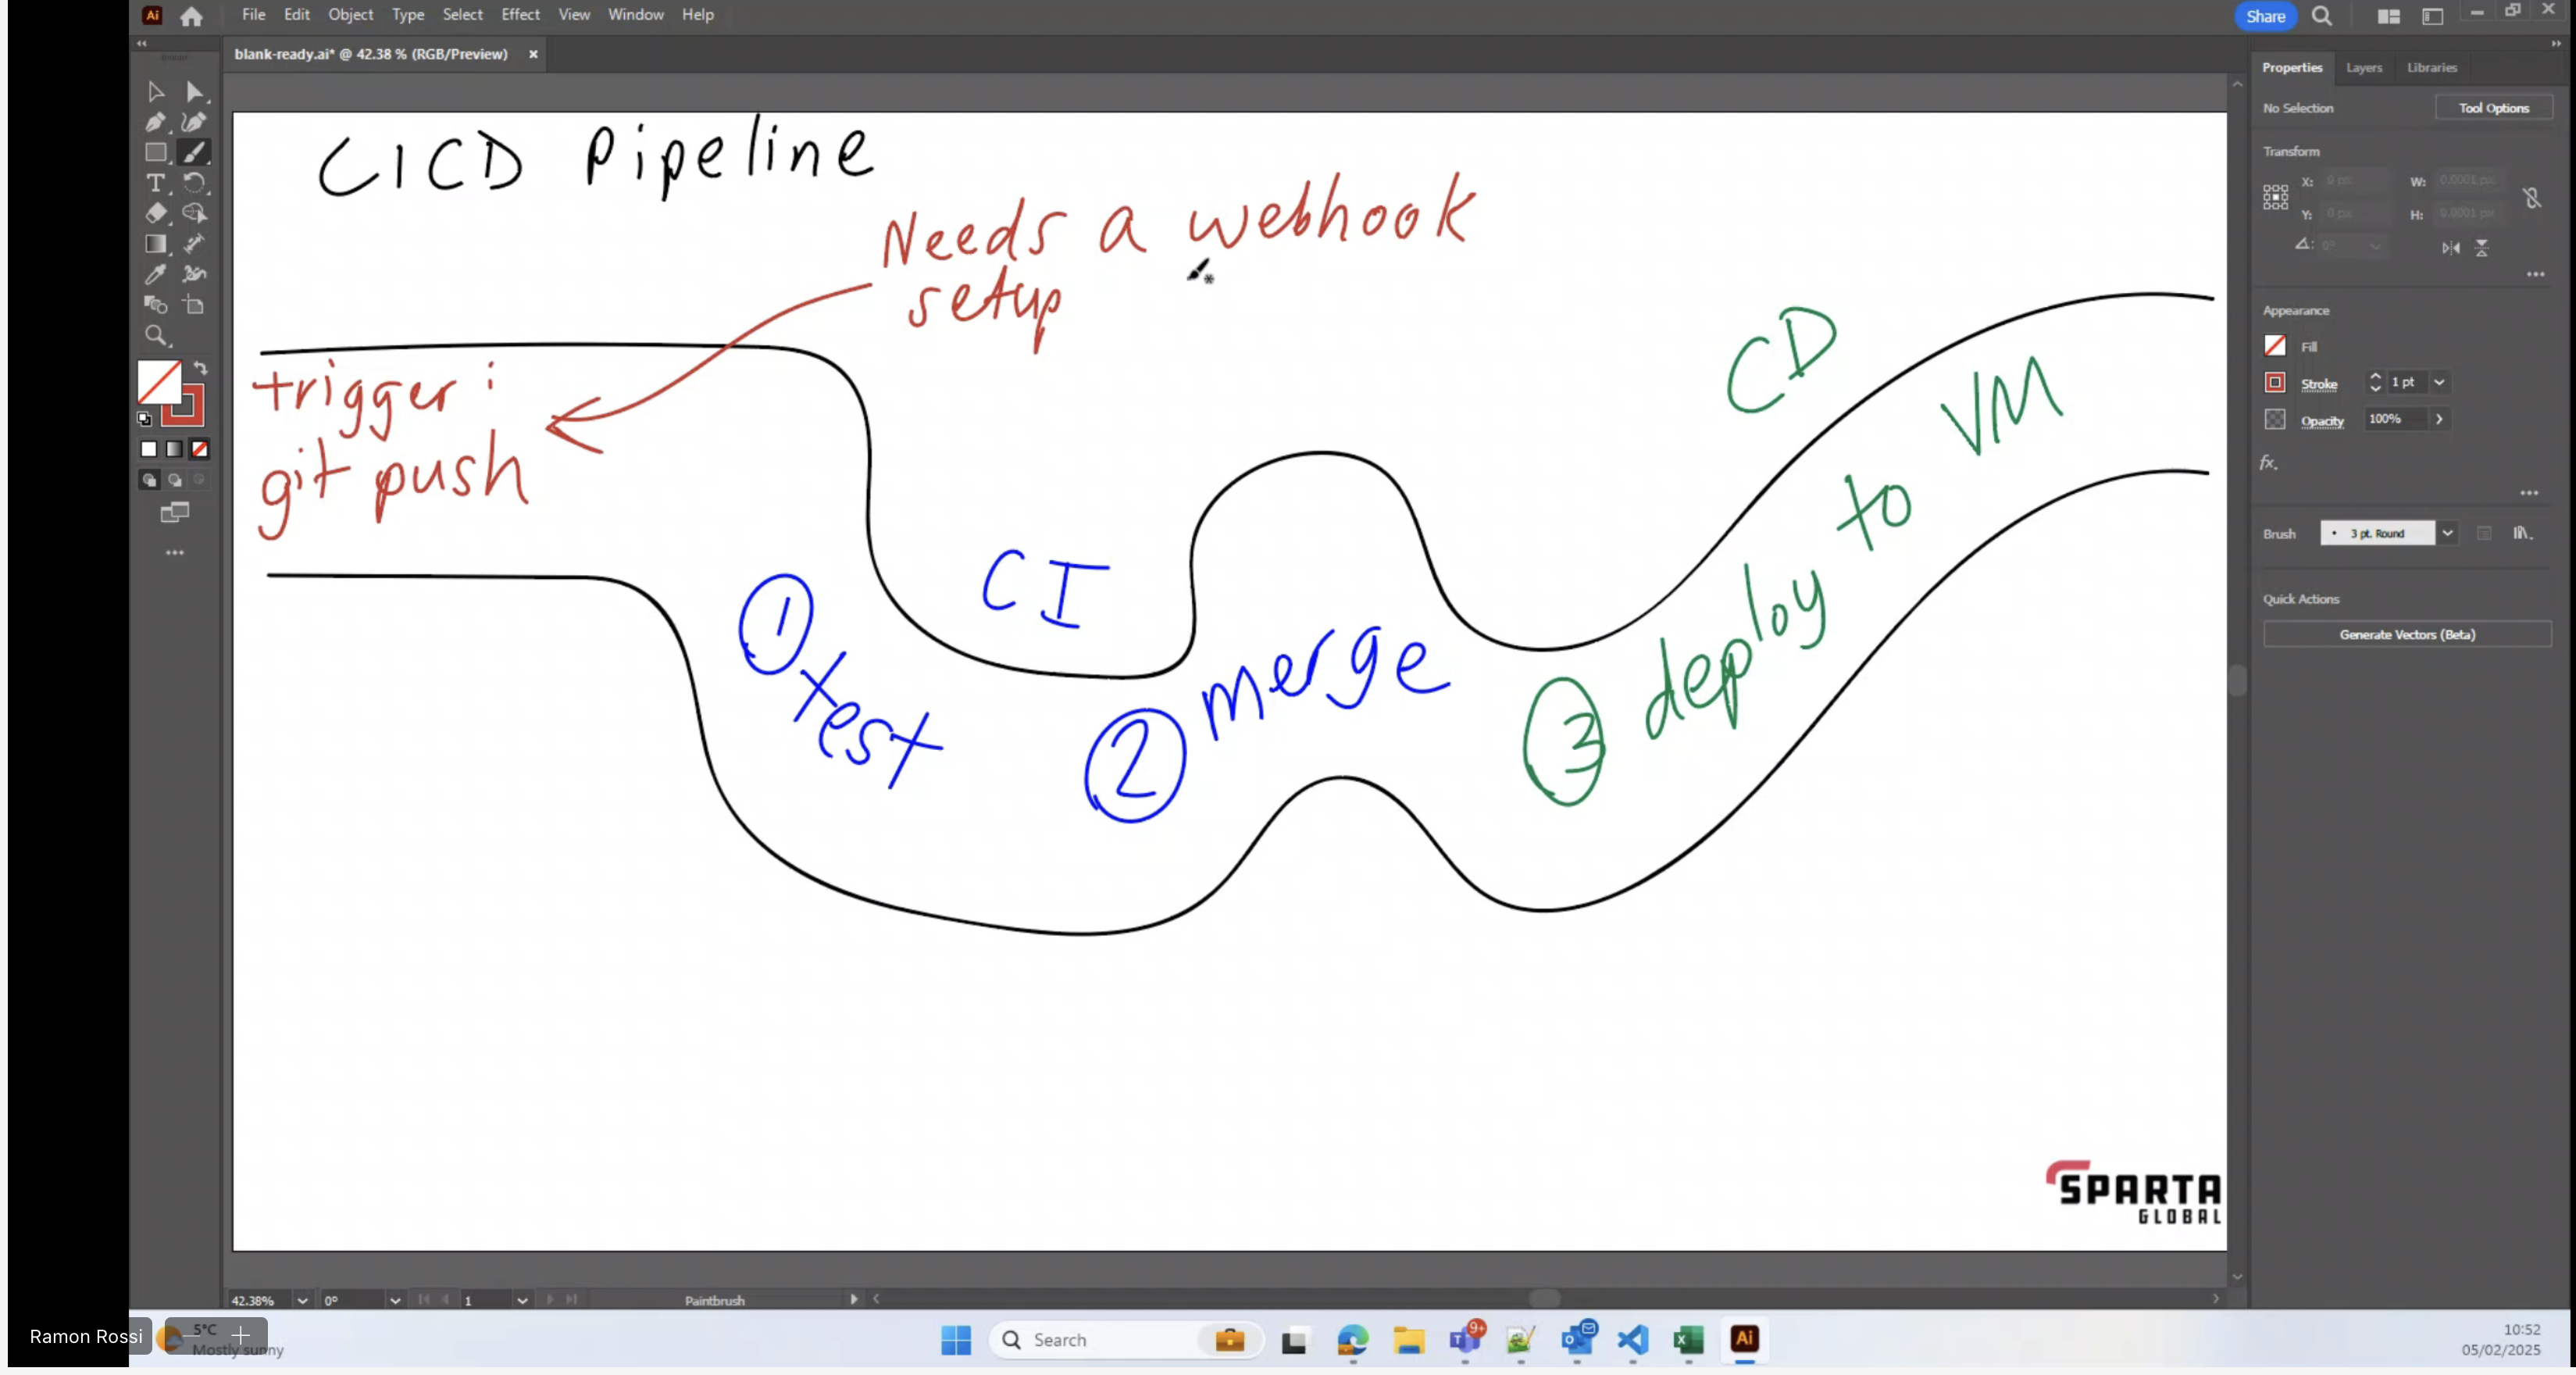 File Edit Object Type Select Effect View Window Help
Share
blank-ready.ai* @ 42.38 % (RGB/Preview)
CICD Pipeline
Needs a webhook
setup
trigger :
git push
CI
① test
② merge
CD
③ deploy to VM
SPARTA
GLOBAL
Properties Layers Libraries
No Selection
Tool Options
Transform
X: 0 px W: 0.0001 px
Y: 0 px H: 0.0001 px
0°
Appearance
Fill
Stroke 1 pt
Opacity 100%
fx.
Brush 3 pt. Round
Quick Actions
Generate Vectors (Beta)
42.38% 0° 1 Paintbrush
Ramon Rossi
5°C
Mostly sunny
Search
9+
10:52
05/02/2025